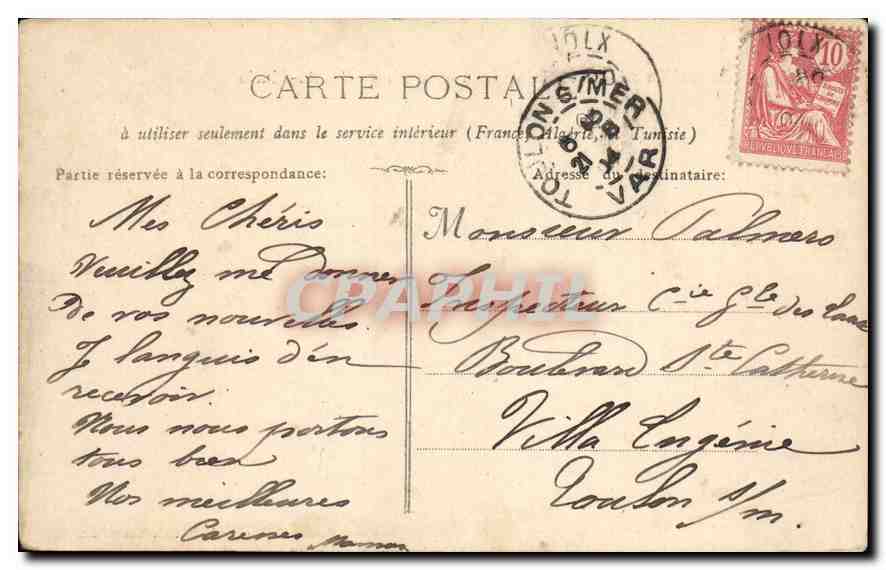 CARTE POSTALE
à utiliser seulement dans le service intérieur (France, Algérie, Tunisie)
Partie réservée à la correspondance:
Adresse du destinataire:
Mes Chéris
Veuillez me donner
De vos nouvelles.
Je languis d'en
recevoir.
Nous nous portons
tous bien
Nos meilleures
Caresses
Maman
Monsieur Palmero
Inspecteur Cie Gle des Eaux
Boulevard Ste Catherine
Villa Eugénie
Toulon s/m.
TOULON S/MER
VAR
10
REPUBLIQUE FRANÇAISE
CPAPHIL